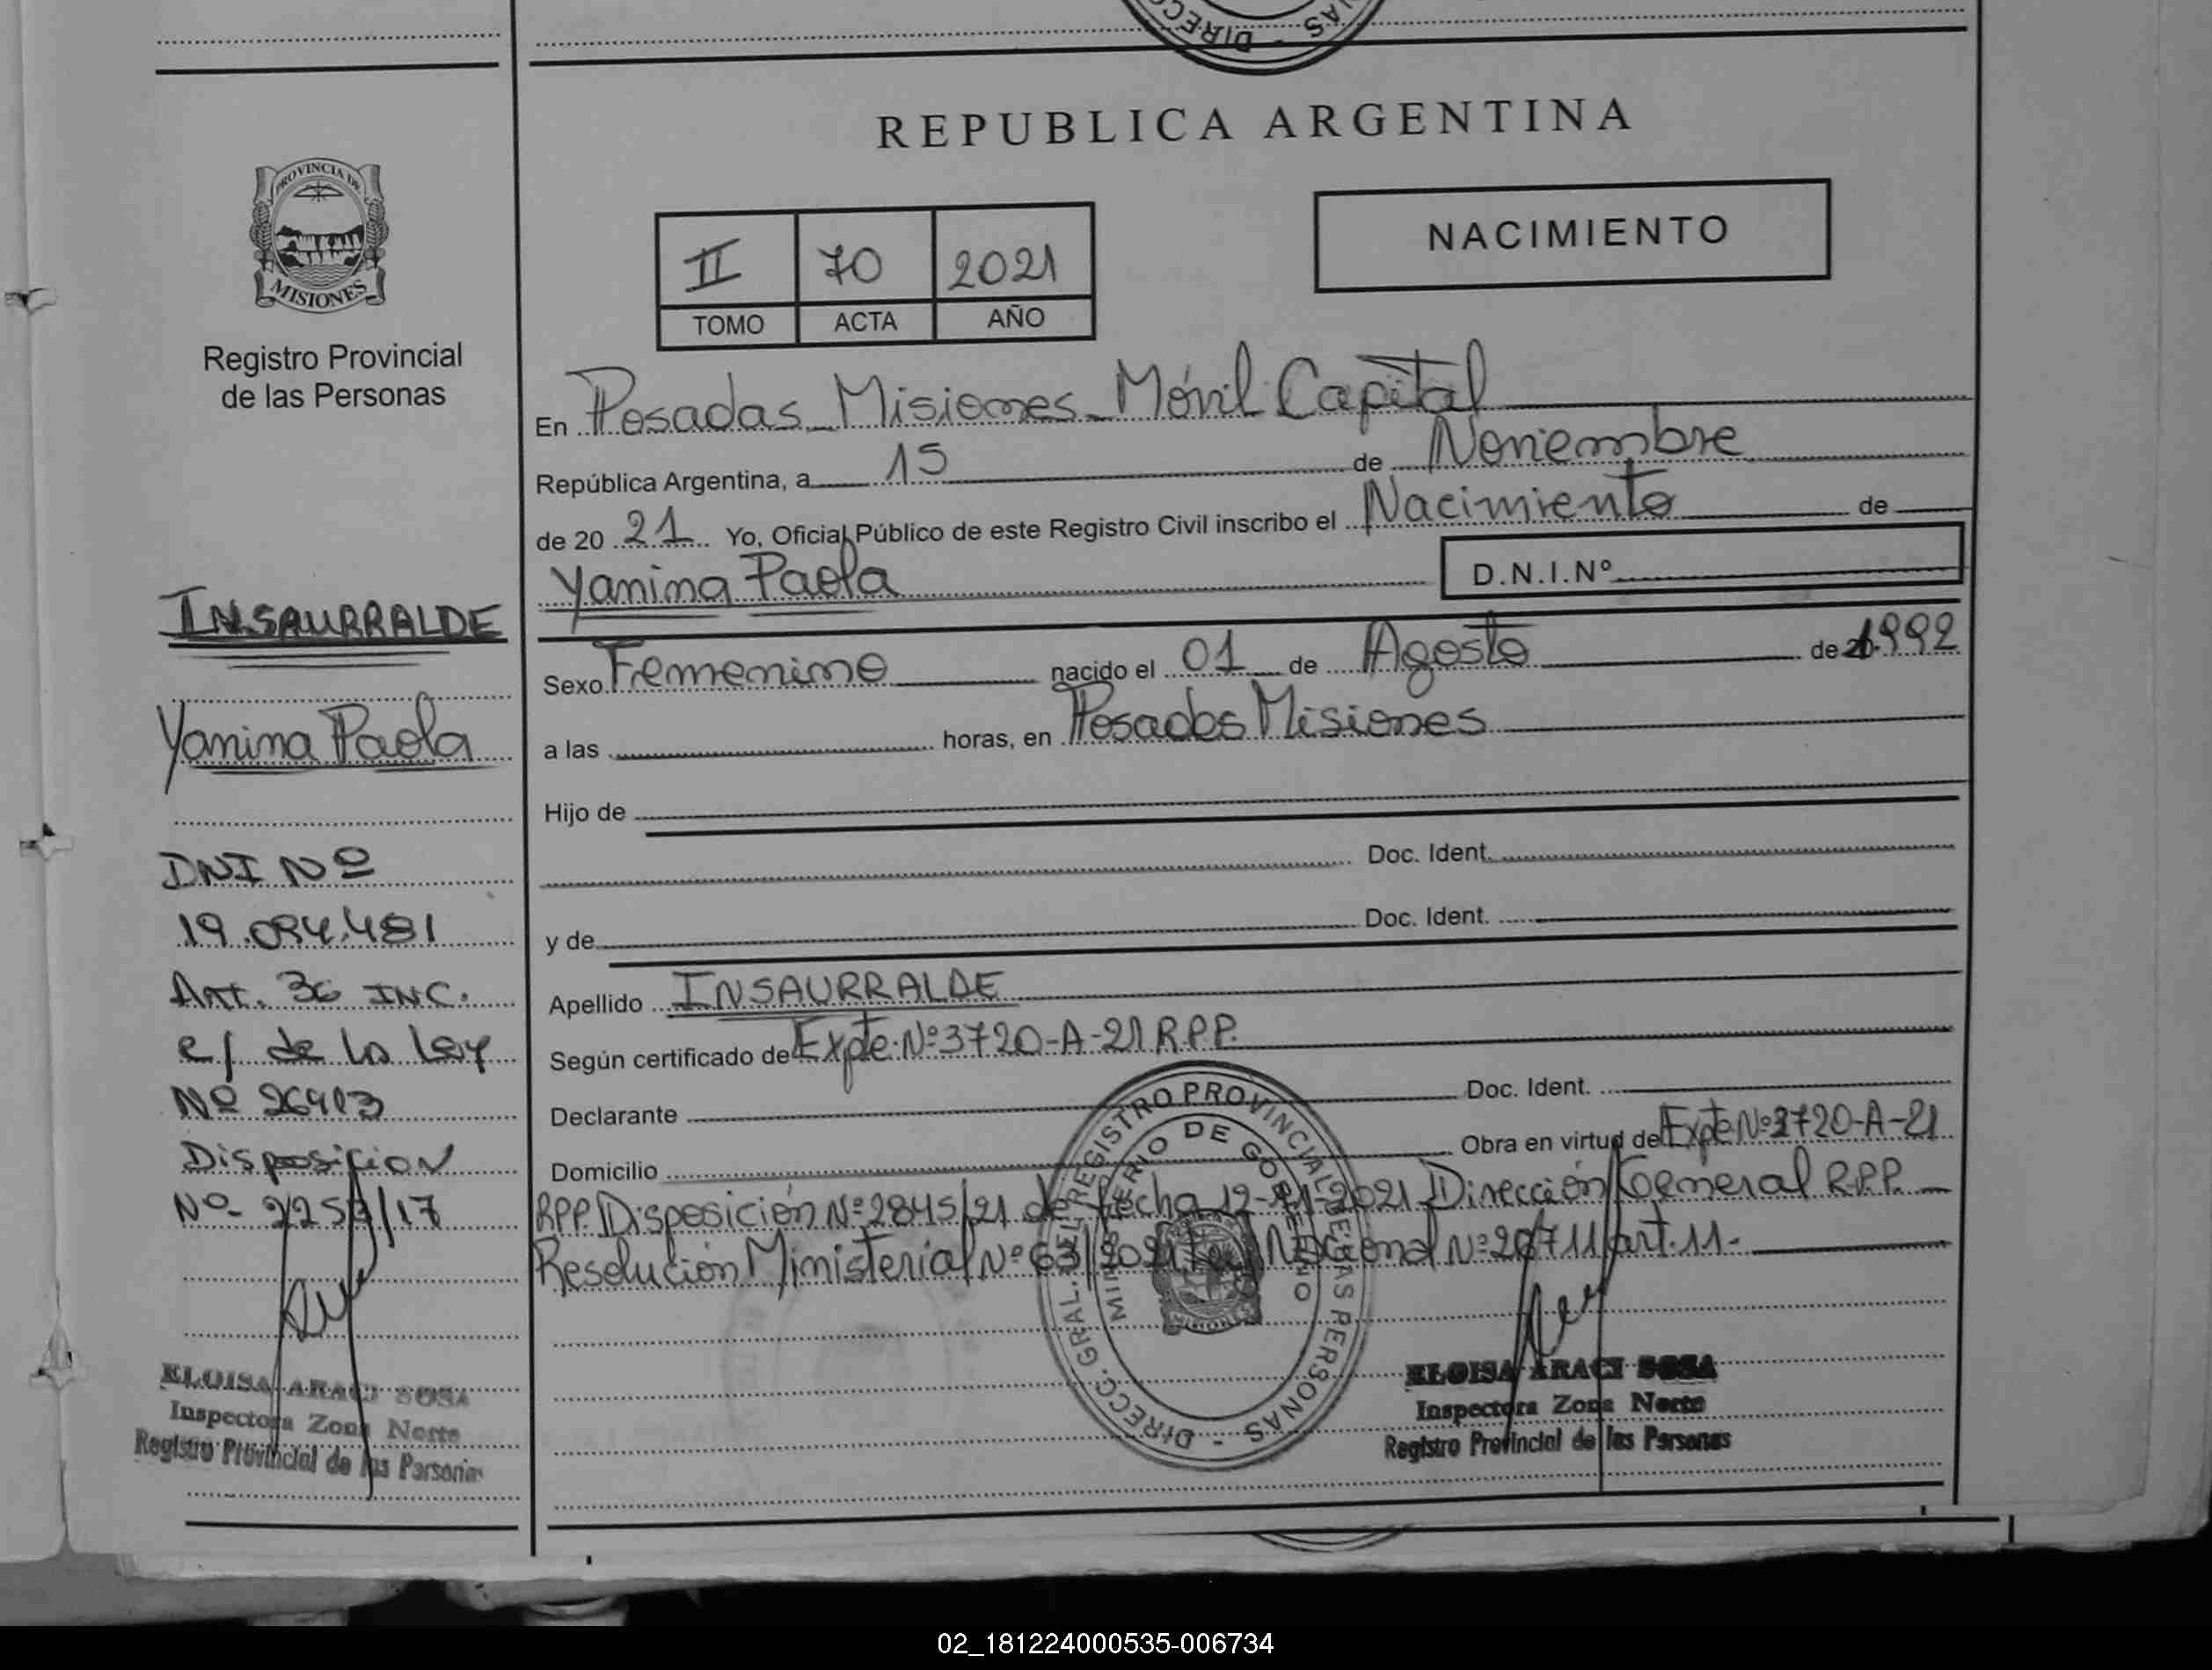 REPUBLICA ARGENTINA
NACIMIENTO
II 70 2021
TOMO ACTA AÑO
PROVINCIA DE
MISIONES
Registro Provincial
de las Personas
INSAURRALDE
Yanina Paola
DNI Nº
19.094.481
Art. 36 INC.
e/ de la ley
Nº 26413
Disposicion
Nº 2253/17
ELOISA ARACI SOSA
Inspectora Zona Norte
Registro Provincial de las Personas
En Posadas Misiones Móvil Capital
República Argentina, a 15 de Noviembre
de 20 21 Yo, Oficial Público de este Registro Civil inscribo el Nacimiento de
Yanina Paola D.N.I.Nº
Sexo Femenino nacido el 01 de Agosto de 1992
a las horas, en Posadas Misiones
Hijo de
Doc. Ident.
y de Doc. Ident.
Apellido INSAURRALDE
Según certificado de Expte Nº 3720-A-21 R.P.P.
Declarante Doc. Ident.
Domicilio Obra en virtud de Expte Nº 3720-A-21
RPP. Disposición Nº 2845/21 de fecha 12-11-2021 Dirección General R.P.P.
Resolución Ministerial Nº 63/2021 Ley Nacional Nº 26711 art. 11.
DIRECC. GRAL. DEL REGISTRO PROVINCIAL DE LAS PERSONAS
MINISTERIO DE GOBIERNO
ELOISA ARACI SOSA
Inspectora Zona Norte
Registro Provincial de las Personas
02_181224000535-006734